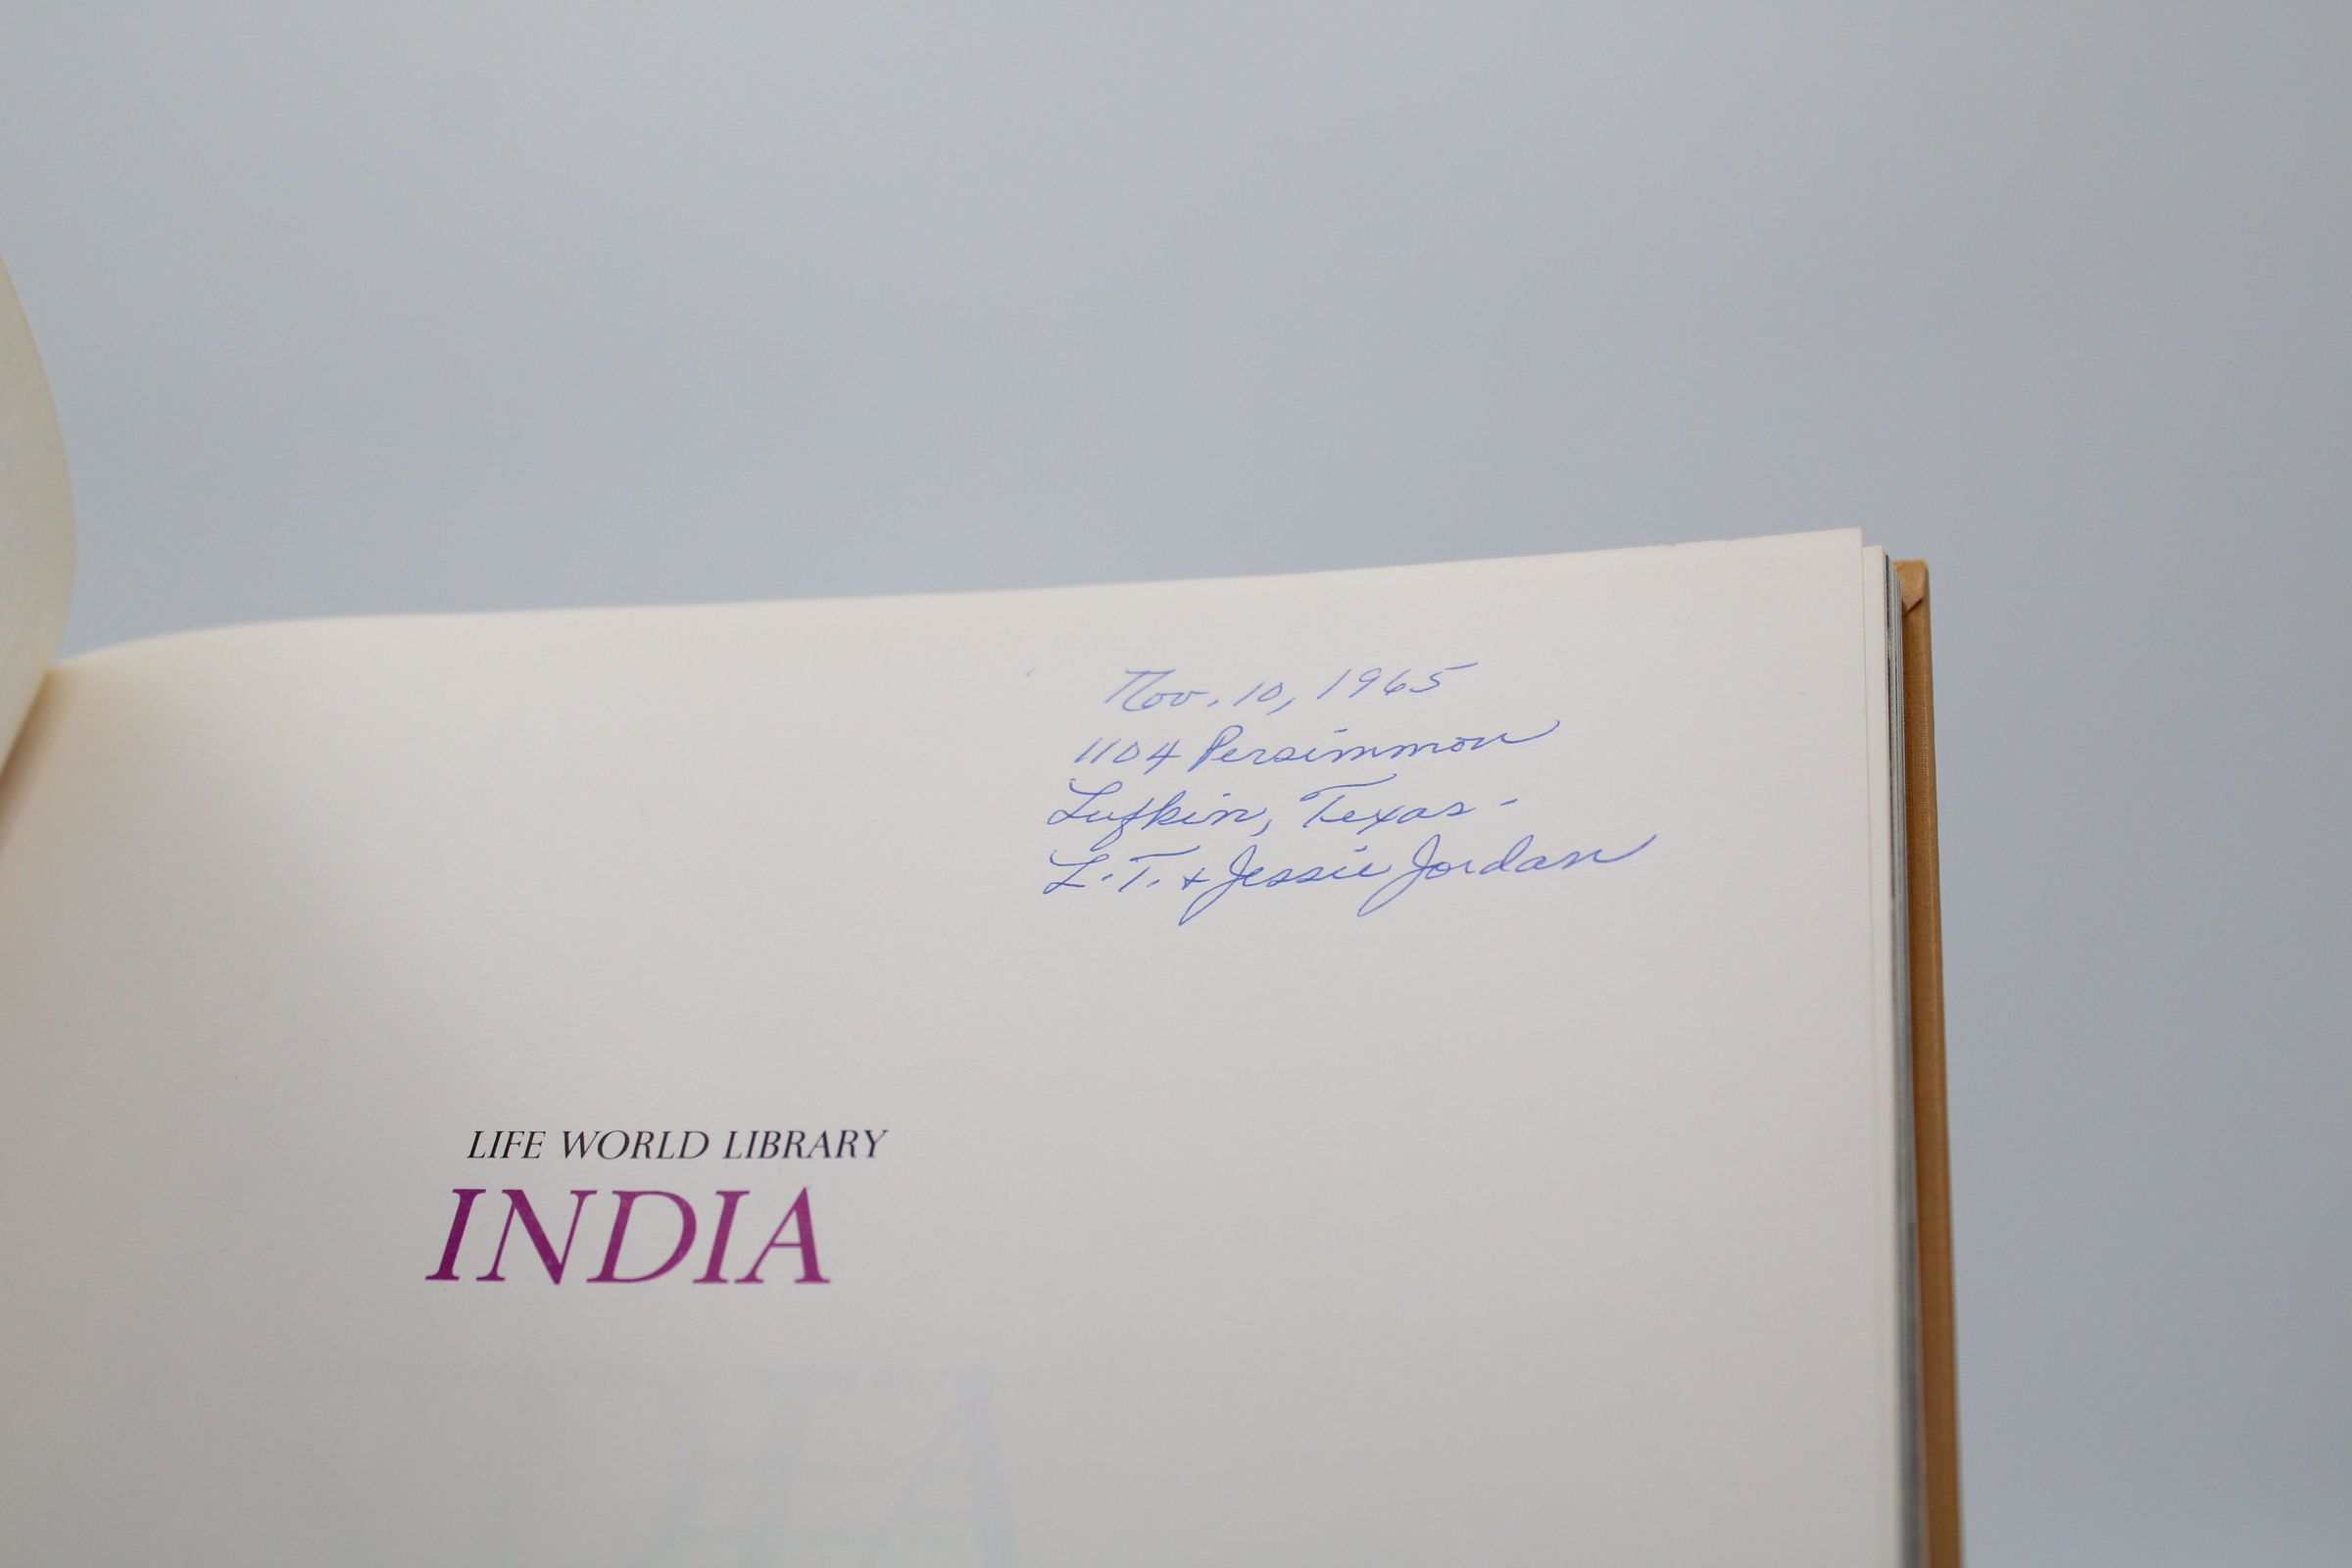 Nov. 10, 1965
1104 Persimmon
Lufkin, Texas -
L.T. + Jessie Jordan
LIFE WORLD LIBRARY
INDIA